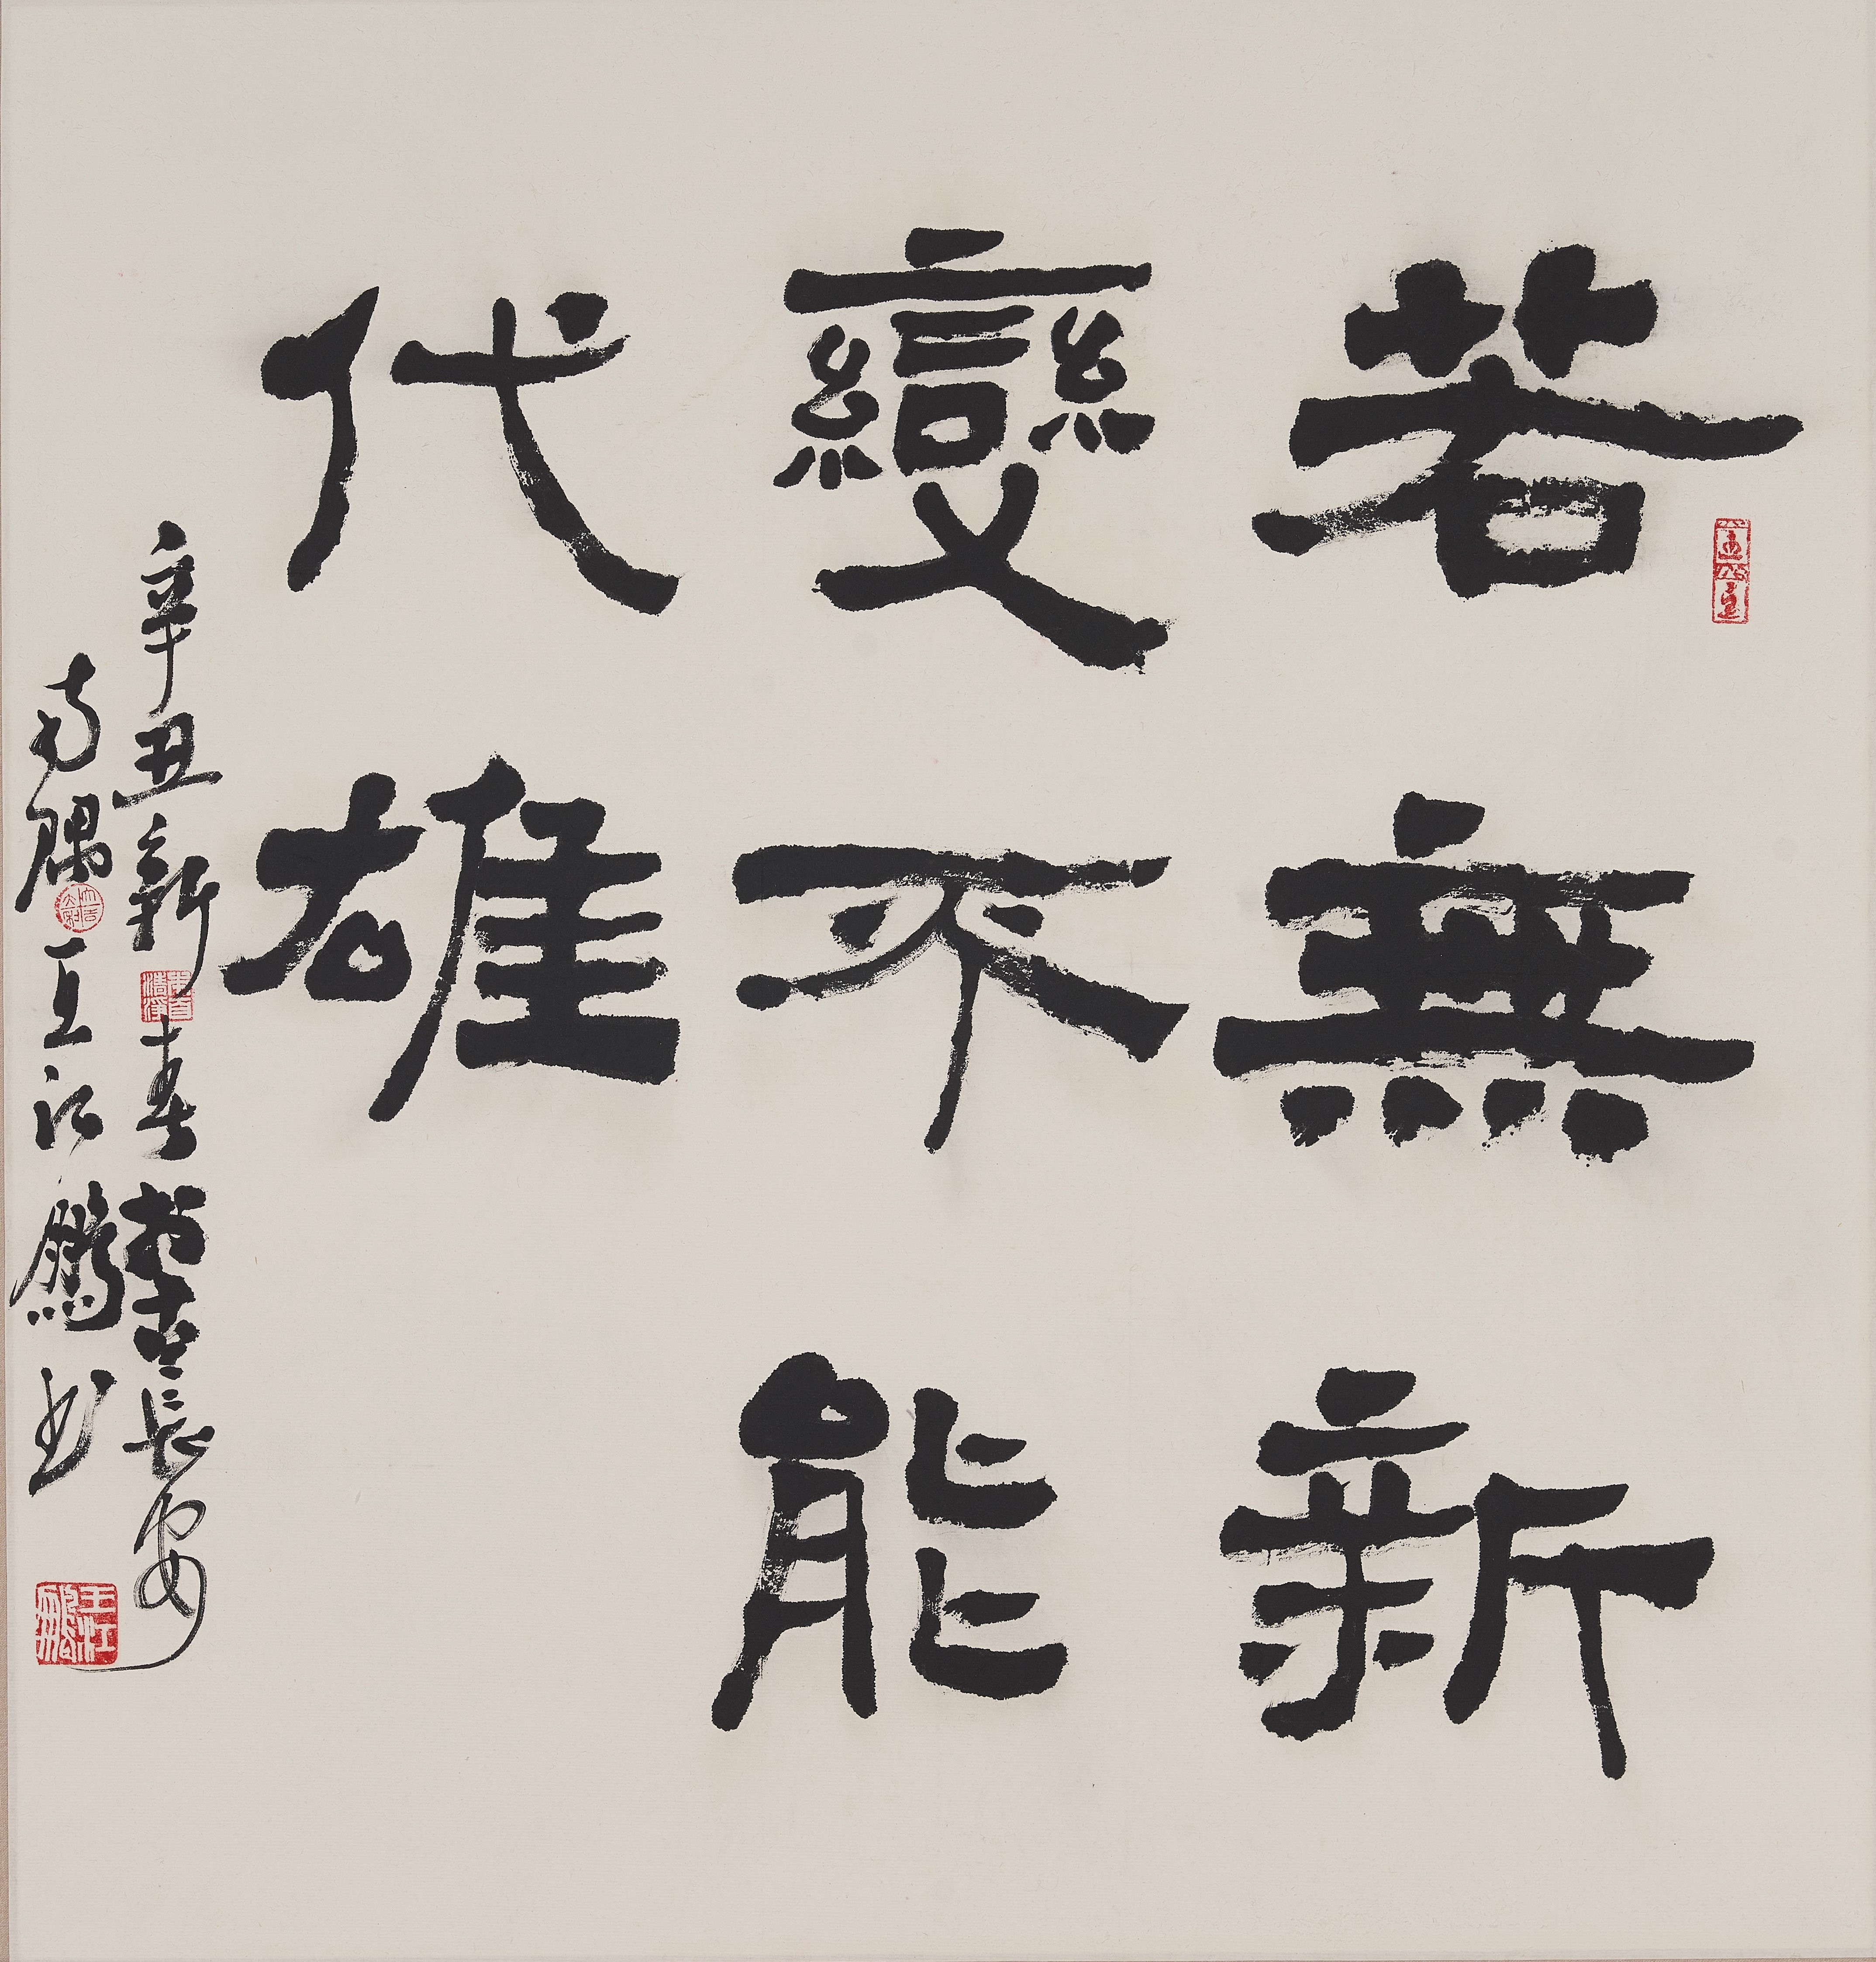 若無新
變不能
代雄
辛丑新春書古長安
南隅王江鵬書
王江鵬